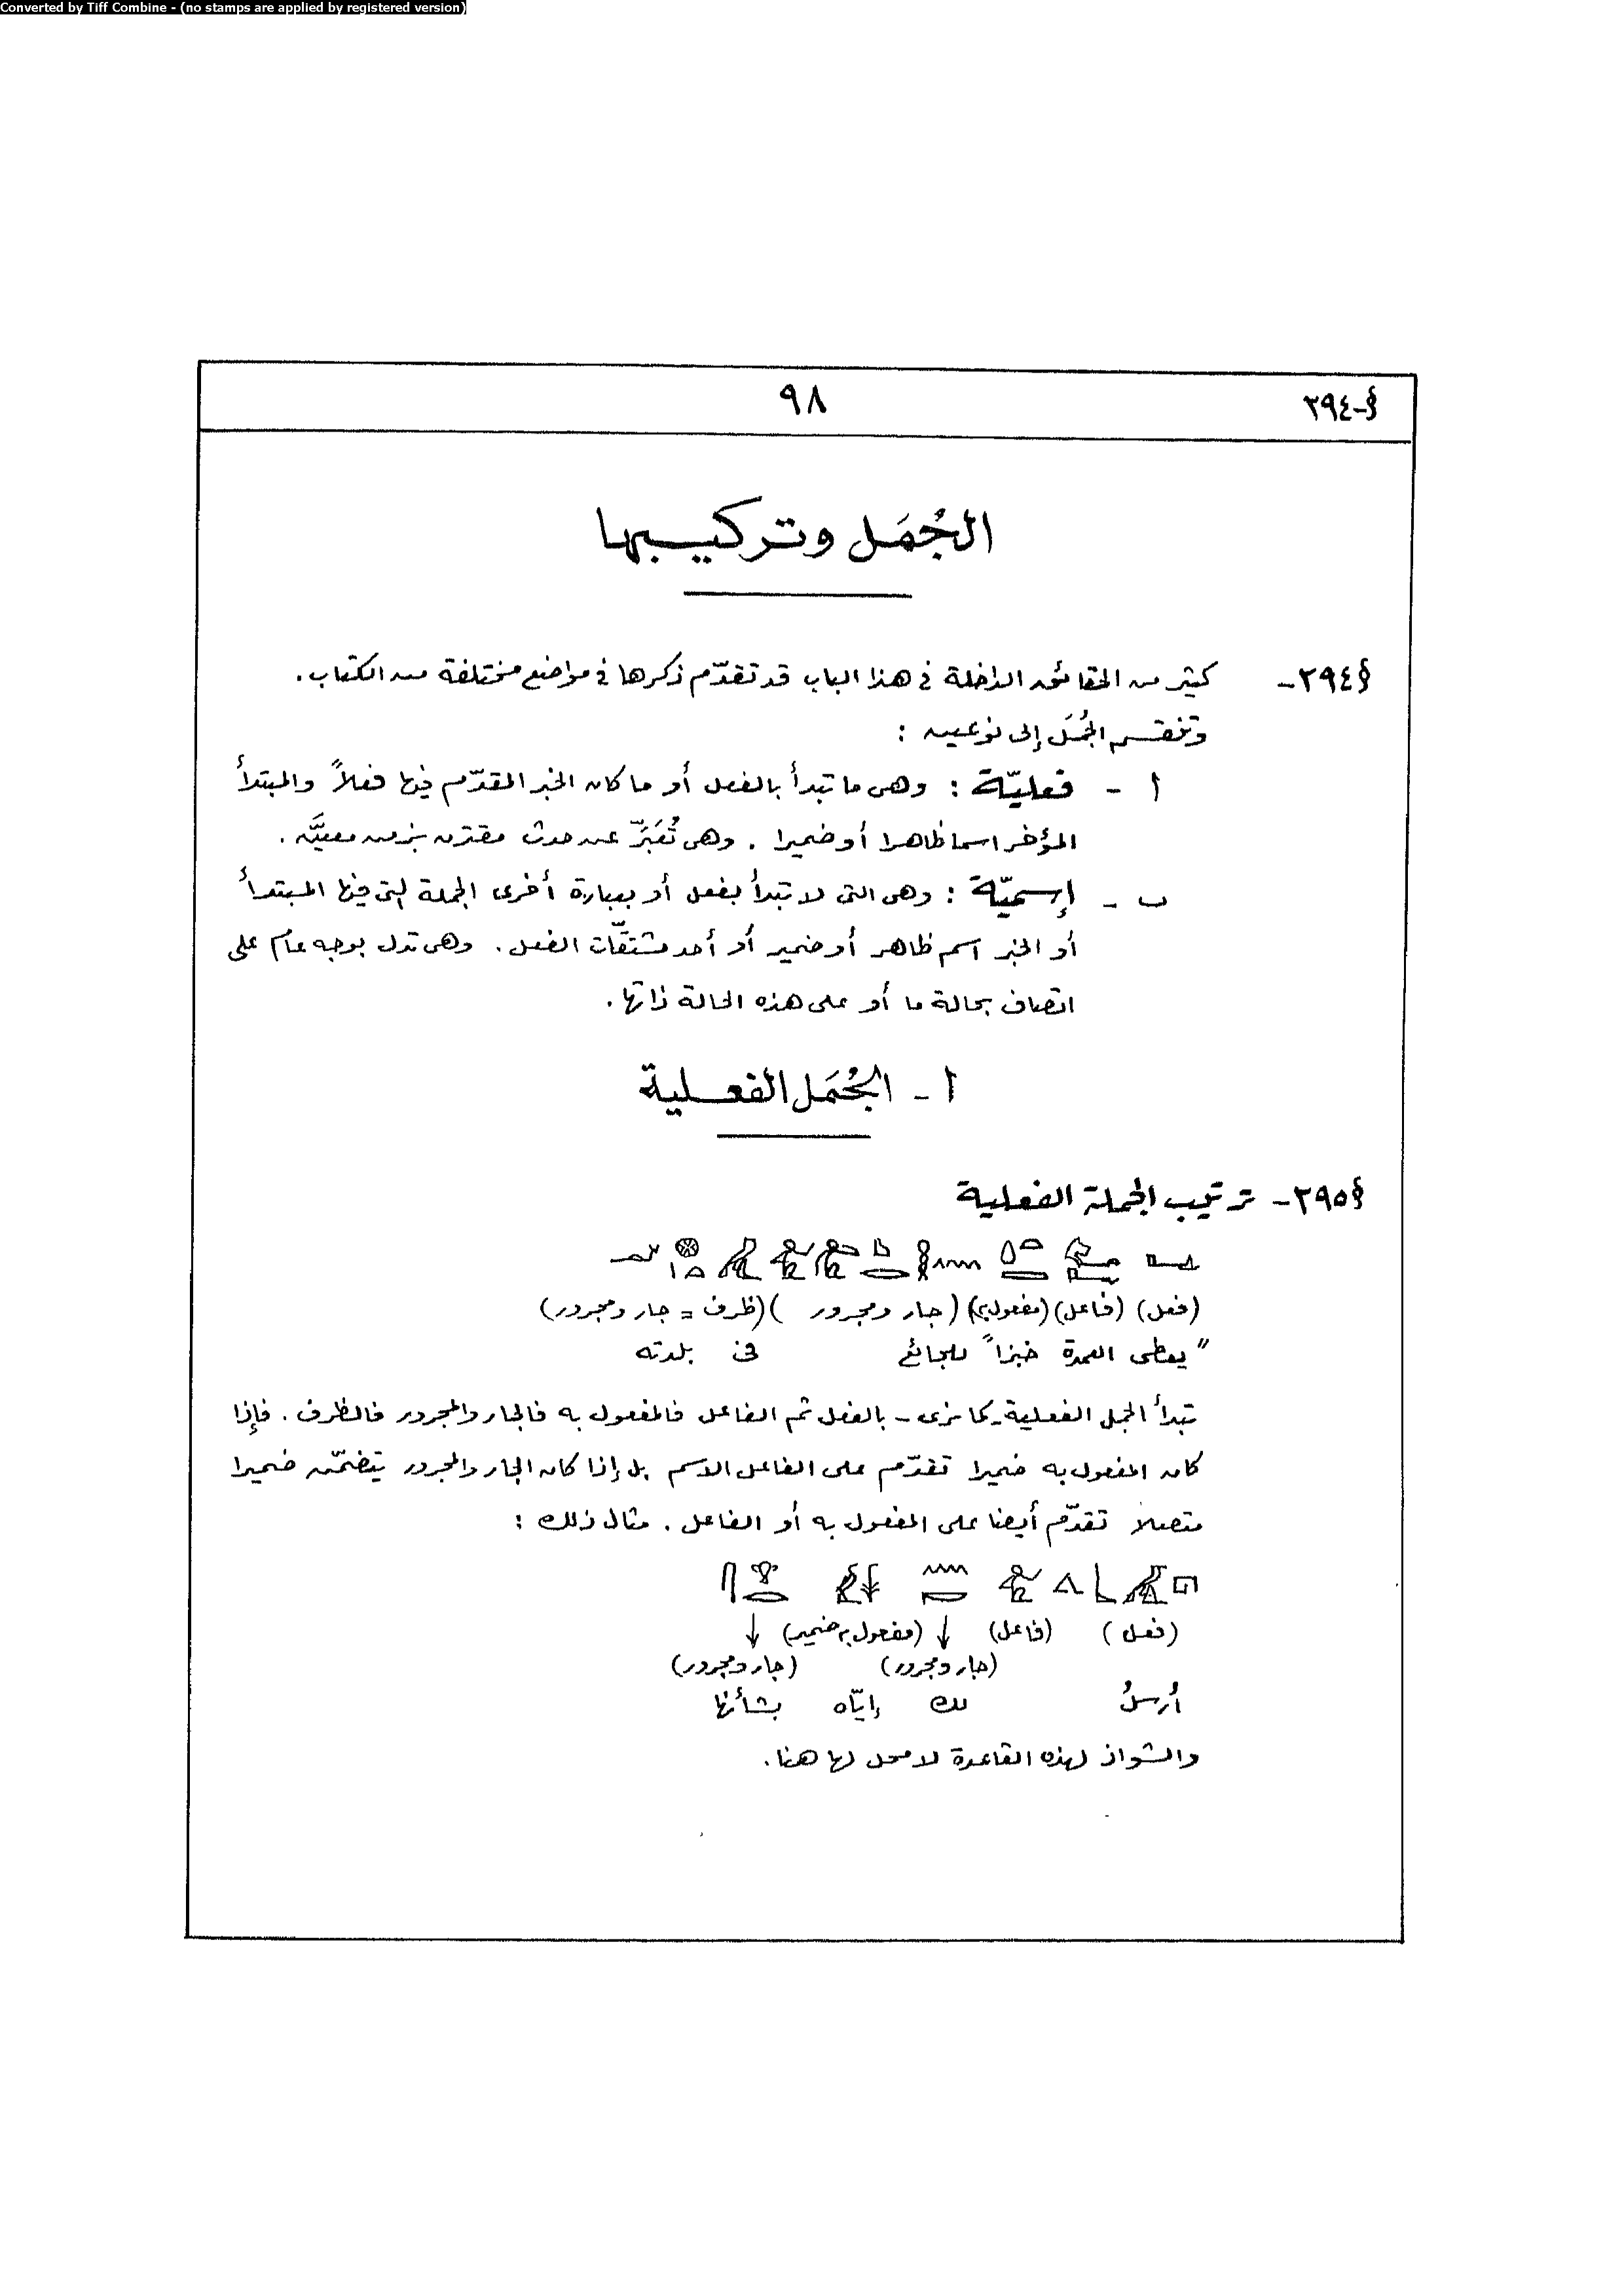 Converted by Tiff Combine - (no stamps are applied by registered version)
§-٢٩٤
٩٨
الجُمَل وتركيبها
§٢٩٤- كثير من الحقائق الداخلة في هذا الباب قد تقدّم ذكرها في مواضع مختلفة من الكتاب.
وتنقسم الجُمَل إلى نوعين :
ا - فعليّة : وهى ما تبدأ بالفعل أو ما كان الخبر المقدّم فيها فعلاً والمبتدأ
المؤخر اسما ظاهرا أو ضميرا . وهى تُعَبِّر عن حدث مقترن بزمن معيَّن .
ب - إسميّة : وهى التى لا تبدأ بفعل أو بعبارة أخرى الجملة التى فيها المبتدأ
أو الخبر اسم ظاهر أو ضمير أو أحد مشتقّات الفعل . وهى تدل بوجه عام على
اتصاف بحالة ما أو على هذه الحالة ذاتها .
ا - الجُمَل الفعلية
§٢٩٥- ترتيب الجملة الفعلية
(فعل) (فاعل) (مفعول به) (جار ومجرور) (ظرف = جار ومجرور)
" يعطى العمدة خبزاً للجائع فى بلدته
تبدأ الجمل الفعلية - كما نرى - بالفعل ثم الفاعل فالمفعول به فالجار والمجرور فالظرف . فإذا
كان المفعول به ضميرا تقدّم على الفاعل الاسم بل إذا كان الجار والمجرور يتضمّن ضميرا
متصلا تقدّم أيضا على المفعول به أو الفاعل . مثال ذلك :
(فعل) (فاعل) ↓ (مفعول به ضمير) ↓
(جار ومجرور) (جار ومجرور)
أُرسلُ لك إيّاه بشأنها
والشواذ لهذه القاعدة لا محل لها هنا .